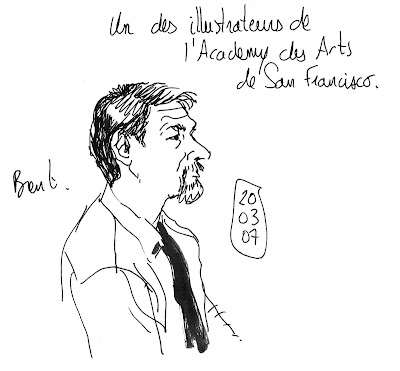 Un des illustrateurs de
l'Academy des Arts
de San Francisco.
Brent.
20
03
07